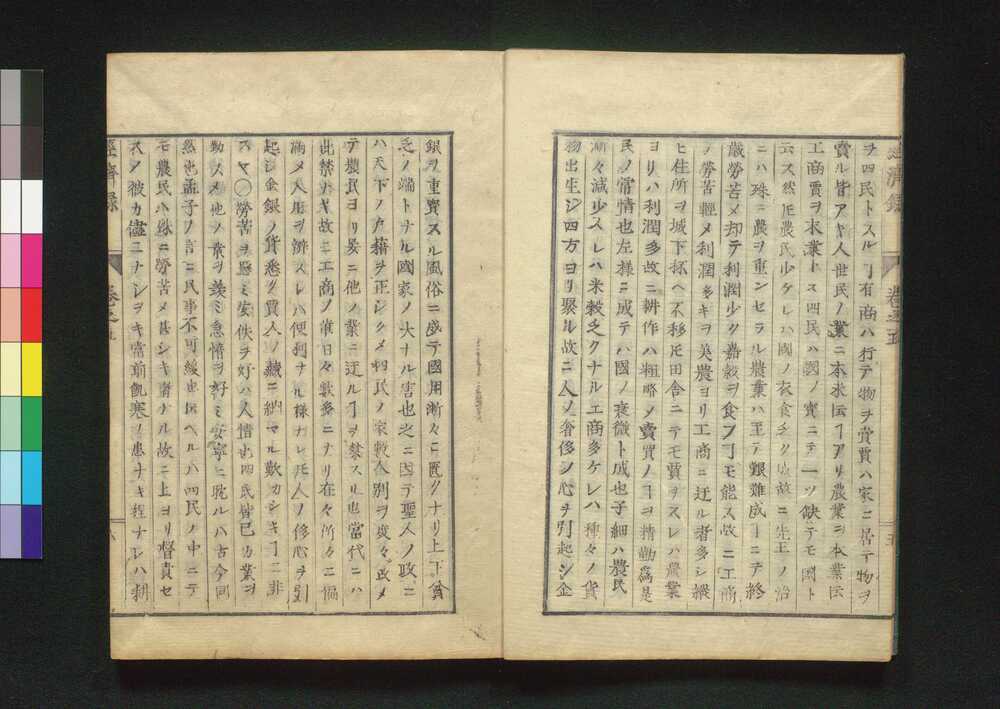 ヲ四民トスルヿ有商ハ行テ物ヲ賣賈ハ家ニ居テ物ヲ
賣ル皆アキ人世民ノ業ニ本末云ヿアリ農業ヲ本業云
工商賈ヲ末業トス四民ハ國ノ寳ニテ一ツ缺テモ國ト
云ス然𪜈農民少ケレハ國ノ衣食乏ク成故ニ先王ノ治
ニハ殊ニ農ヲ重ンセラル農業ハ至テ艱難成ヿニテ終
歳勞苦メ却テ利潤少ク嘉穀ヲ食フヿモ能ス故ニ工商
ノ勞苦輕メ利潤多キヲ美農ヨリ工商ニ迁ル者多シ縦
ヒ住所ヲ城下抔ヘ不移𪜈田舎ニテモ賈ヲスレハ農業
ヨリハ利潤多故ニ耕作ハ粗略メ賣買ノヿヲ精勤爲是
民ノ常情也左様ニ成テハ國ノ衰微ト成也子細ハ農民
漸々減少スレハ米穀乏クナル工商多ケレハ種々ノ貨
物出生シ四方ヨリ聚ル故ニ人ノ奢侈ノ心ヲ引起シ金
經濟録
卷之五
五
銀ヲ重寳スル風俗ニ盛テ國用漸々ニ匱クナリ上下貧
乏ノ端トナル國家ノ大ナル害也之ニ因テ聖人ノ政ニ
ハ天下ノ戸籍ヲ正シクメ四民ノ家數人別ヲ度々改メ
テ農民ヨリ晏ニ他ノ業ニ迁ルヿヲ禁スル也當代ニハ
此禁ナキ故ニ工商ノ輩日々歎多ニナリ在々所々ニ徧
満メ人用ヲ濟スレハ便利ナル様ナレ𪜈人ノ侈心ヲ引
起シ金銀ノ貨悉ク賈人ノ藏ニ納マル歎カシキヿニ非
スヤ〇勞苦ヲ惡ミ安佚ヲ好ハ人情也四民皆己カ業ヲ
勤スメ他ノ業ヲ羨ミ怠惰ヲ好ミ安寧ニ耽ルハ古今同
然也孟子ノ言ニ民事不可緩也ト云ヘルハ四民ノ中ニテ
モ農民ハ殊ニ勞苦メ甚シキ者ナル故ニ上ヨリ督責セ
スメ彼カ儘ニナシヲキ當前飢寒ノ患ナキ程ナレハ耕
經濟録
卷之五
六